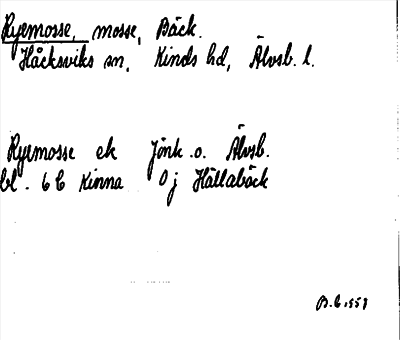 Ryemosse, mosse, Bäck.
Håcksviks sn, Kinds hd, Älvsb. l.
Ryemosse ek Jönk. o. Älvsb.
bl. 6 C Kinna 0 j Hällabäck